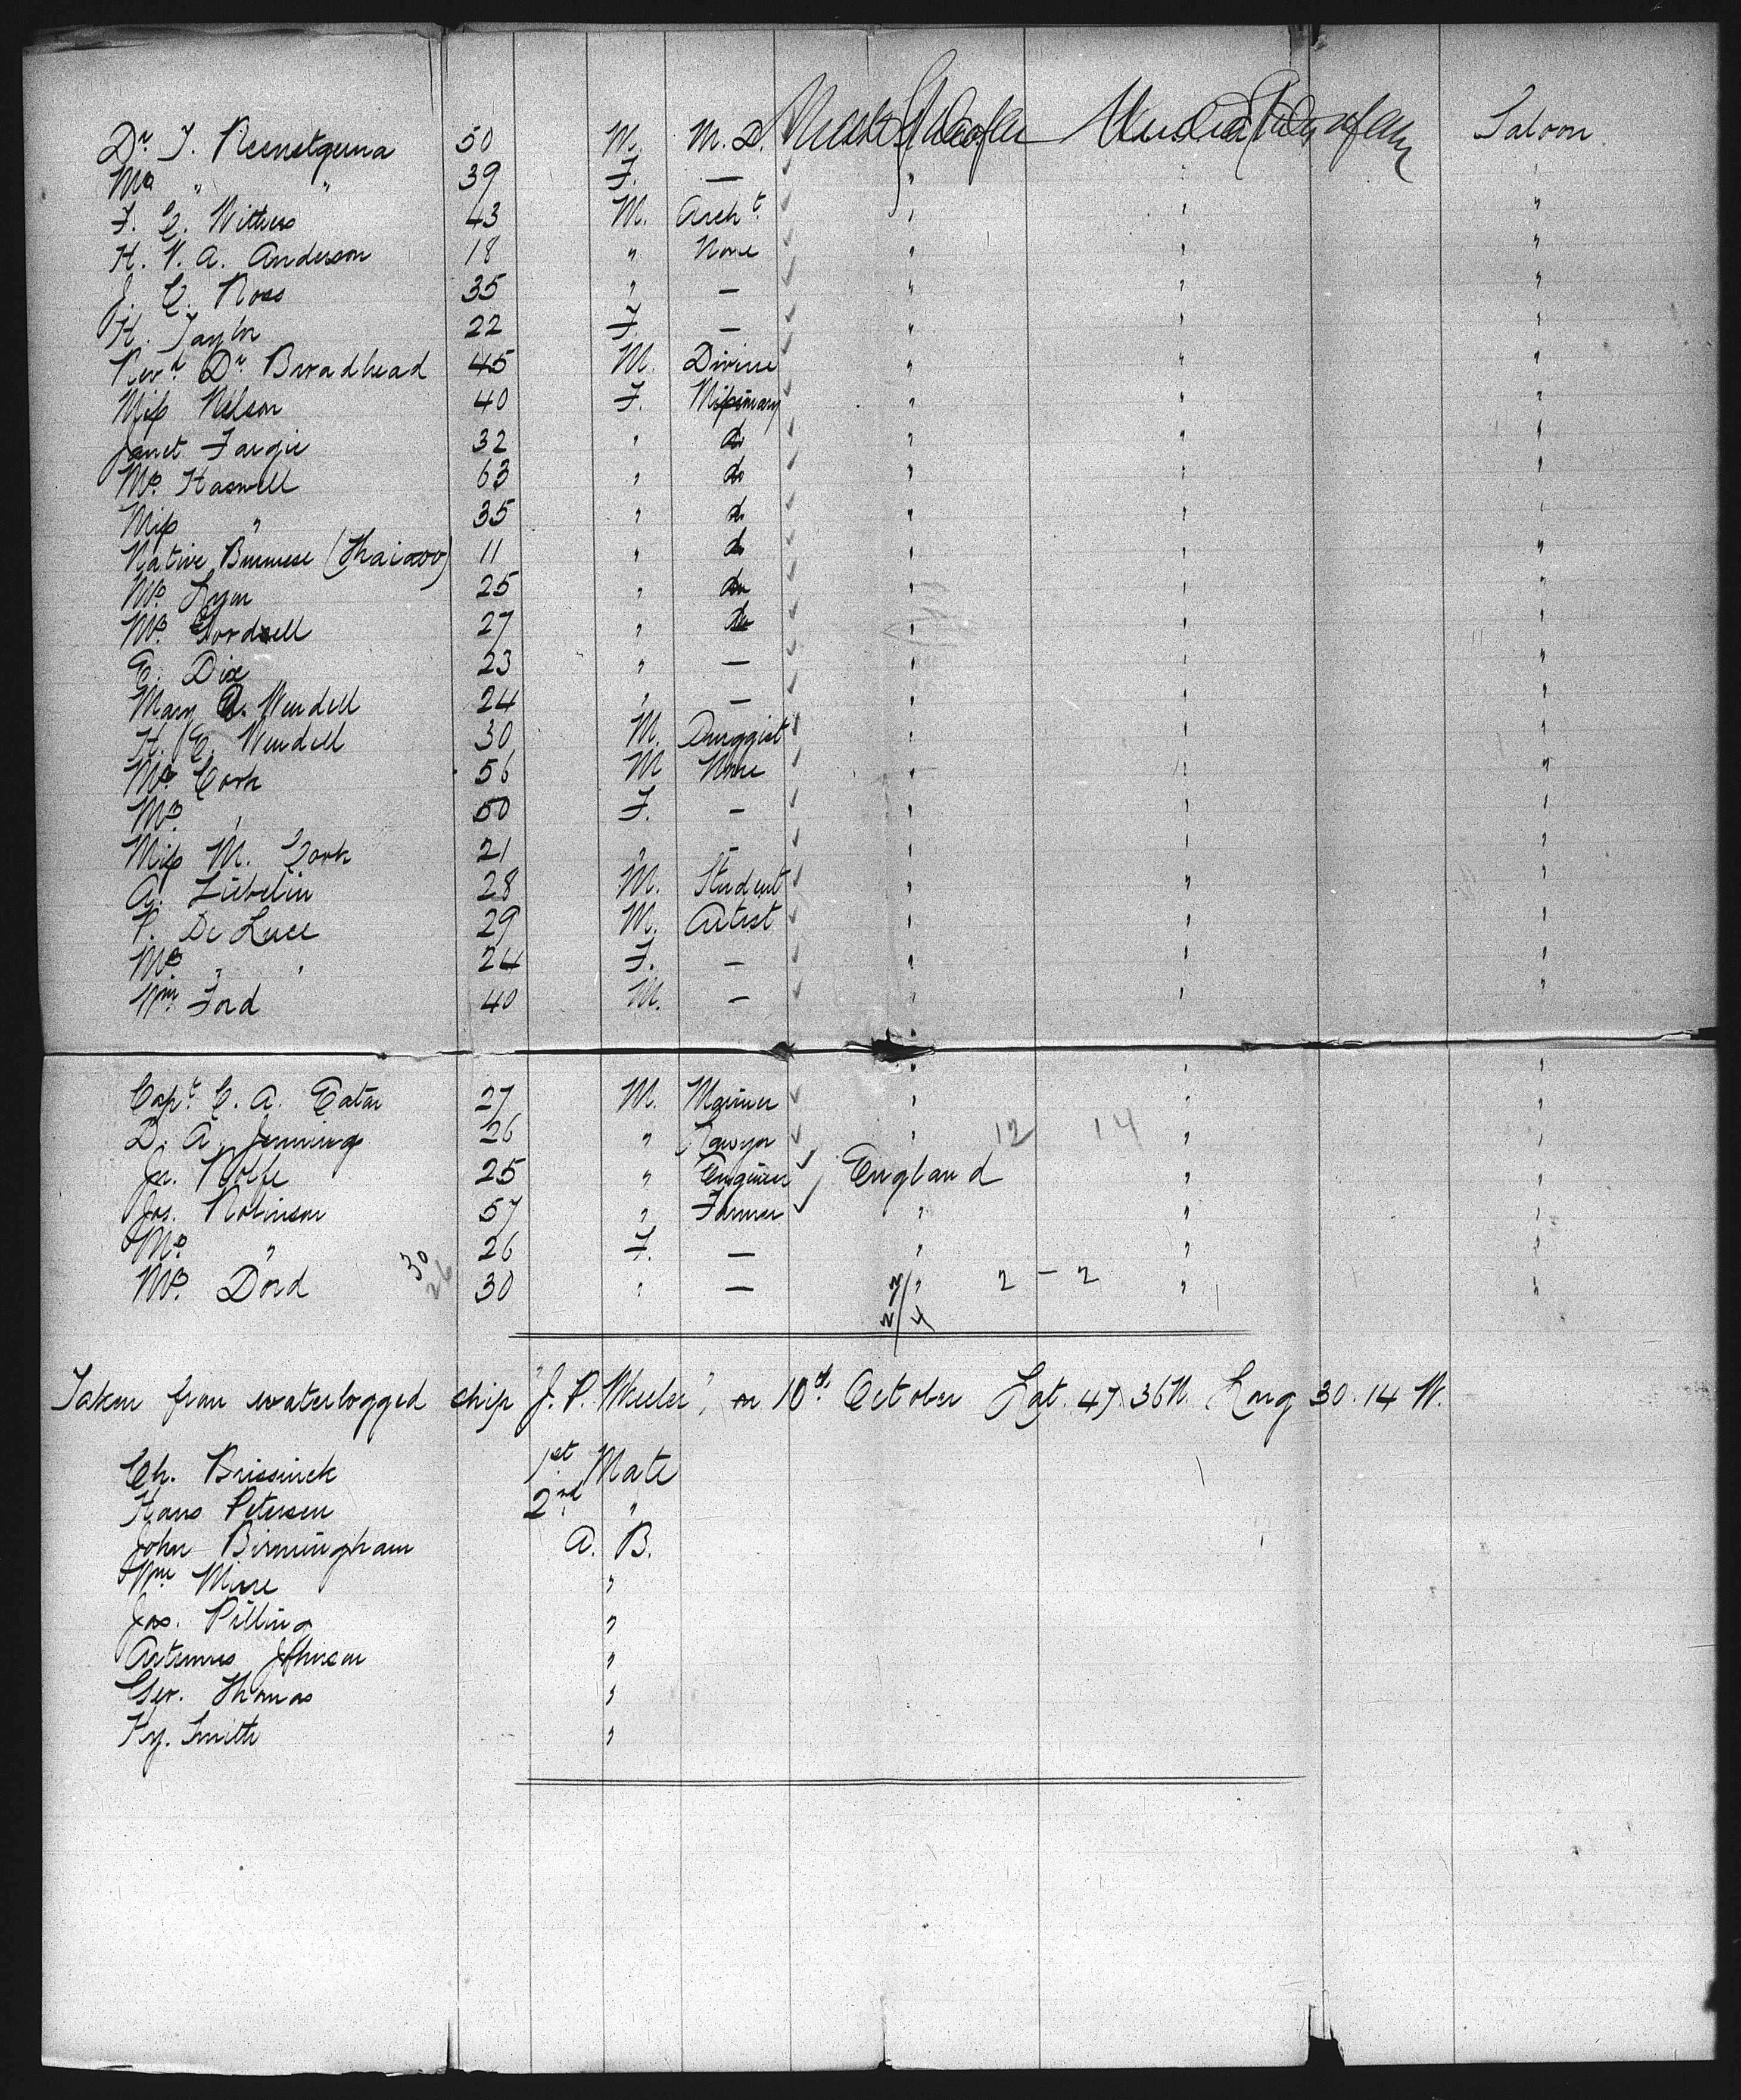 Dr. T. 50 M. M.D. United States of America United States of America Saloon
Mrs " " 39 F. — " " "
F. C. Withers 43 M. Archt. " " "
H. V. A. Anderson 18 " None " " "
J. C. Ross 35 " — " " "
H. Taylor 22 F. — " " "
Revd. Dr. Broadhead 45 M. Divine " " "
Miss Nelson 40 F. Missionary " " "
Janet Fargie 32 " do " " "
Mrs. Haswell 63 " do " " "
Miss " 35 " do " " "
Native Burmese 11 " do " " "
Mrs. Lyon 25 " do " " "
Mrs. 27 " do " " "
E. Dix 23 " — " " "
Mary A. Wendell 24 " — " " "
H. C. Wendell 30 M. Druggist " " "
Mr. Cork 56 M None " " "
Mrs. " 50 F. — " " "
Miss M. Cork 21 " — " " "
A. Liebelin 28 M. Student " " "
P. De Luce 29 M. Artist " " "
Mrs " " 24 F. — " " "
Wm. Ford 40 M. — " " "
Capt. C. A. Eaton 27 M. Mariner " " "
D. A. Jennings 26 " Lawyer " 12 14 " "
Jn. Rolfe 25 " Engineer England " "
Jos. Robinson 57 " Farmer " " "
Mrs. " 26 F. — " " "
Mrs. Dord 30 26 30 " — " 2 – 2 " "
Taken from waterlogged ship "J. P. Wheeler", on 10th. October Lat. 47.36 N. Long 30.14 W.
Ch. Brissinck 1st Mate
Hans Petersen 2nd "
John Birmingham A. B.
Wm. "
Jas. Pilling "
Artemus Johnson "
Geo. Thomas "
Hy. Smith "